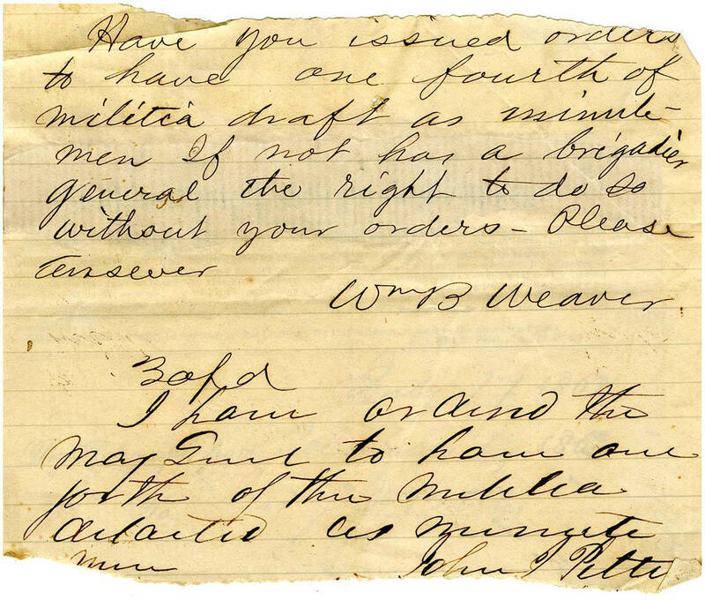 Have you issued orders
to have one fourth of
militia draft as minute-
men If not has a brigadier
general the right to do so
without your orders - Please
Answer
Wm B Weaver
I have ordered the
Maj Genl to have one
forth of the militia
detailed as minute
men John J Pettus